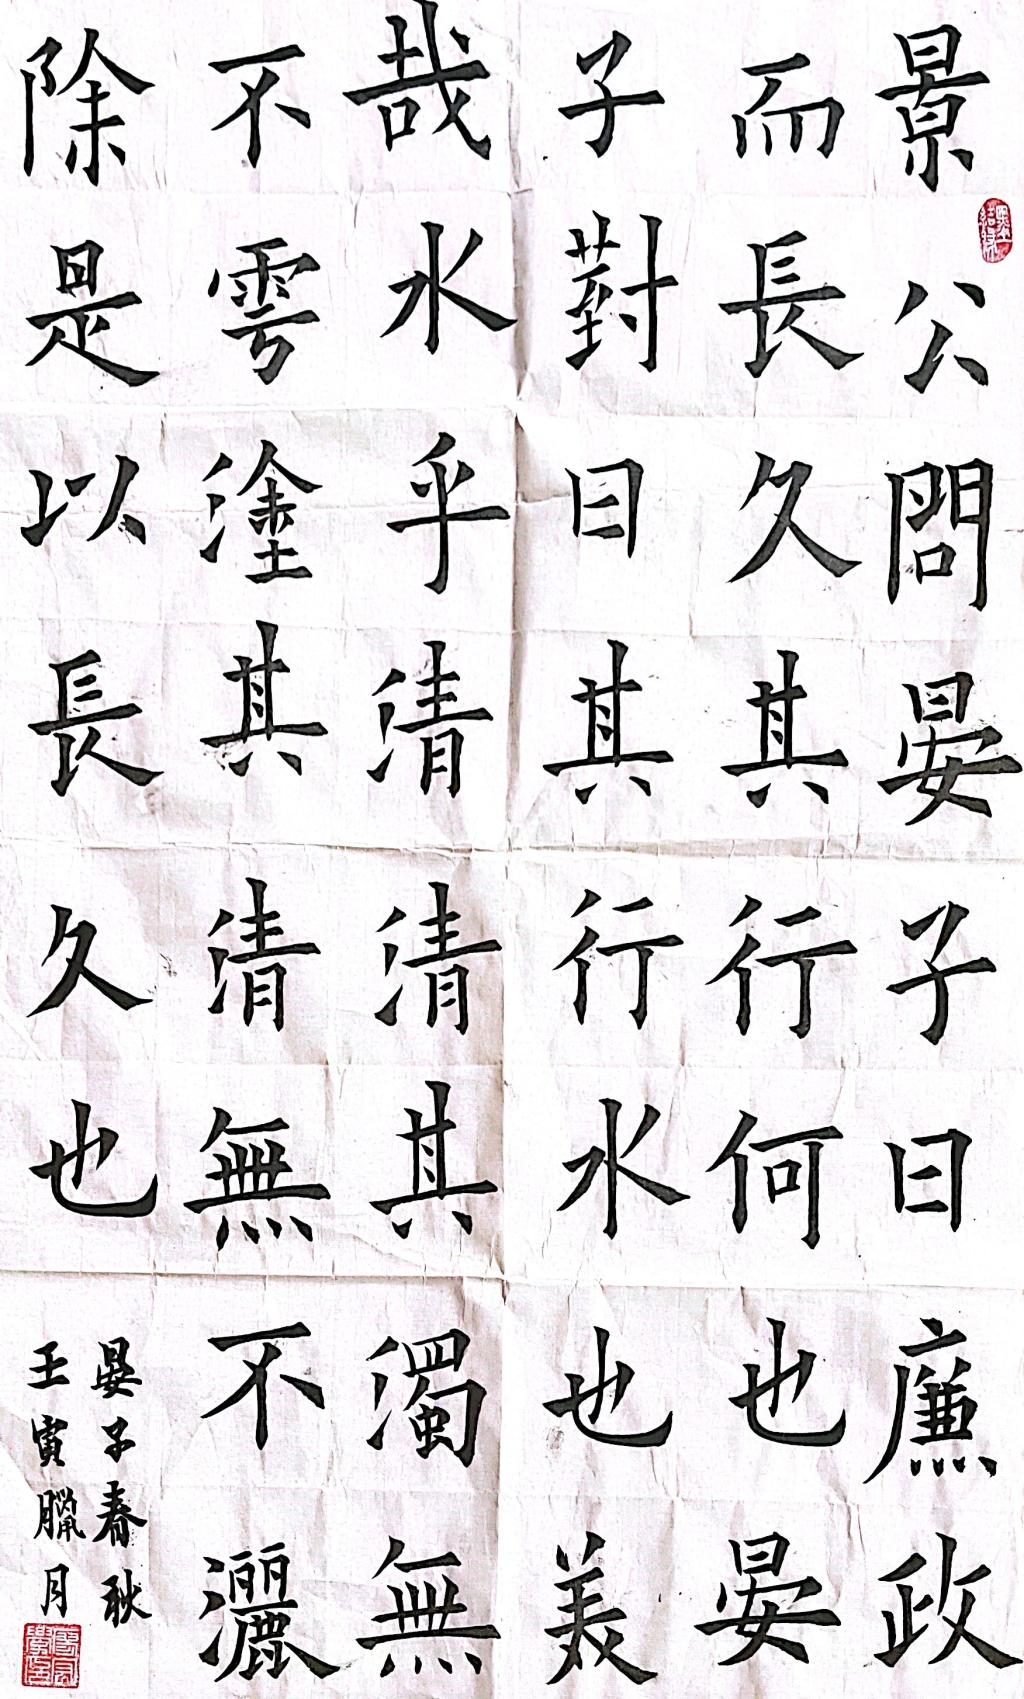 景公問晏子曰廉政
而長久其行何也晏
子對曰其行水也美
哉水乎清清其濁無
不雩塗其清無不灑
除是以長久也
晏子春秋
壬寅臘月